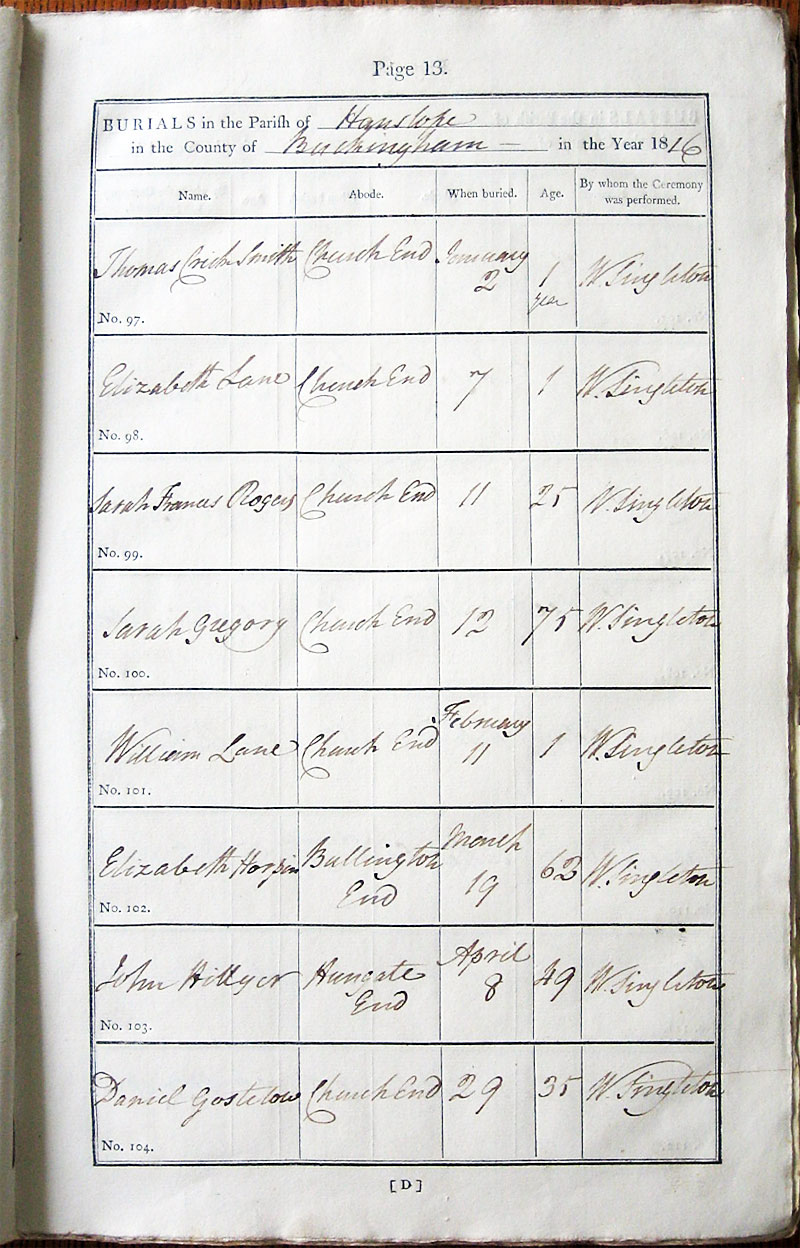 Page 13.
BURIALS in the Parish of Hanslope
in the County of Buckingham — in the Year 1816
Name. Abode. When buried. Age. By whom the Ceremony was performed.
Thomas Crick Smith Church End January 2 1 year W. Singleton
No. 97.
Elizabeth Lane Church End 7 1 W. Singleton
No. 98.
Sarah Frances Rogers Church End 11 25 W. Singleton
No. 99.
Sarah Gregory Church End 12 75 W. Singleton
No. 100.
William Lane Church End February 11 1 W. Singleton
No. 101.
Elizabeth Bullington End March 19 62 W. Singleton
No. 102.
John Hillyer Hungate End April 8 49 W. Singleton
No. 103.
Daniel Gostelow Church End 29 35 W. Singleton
No. 104.
[D]